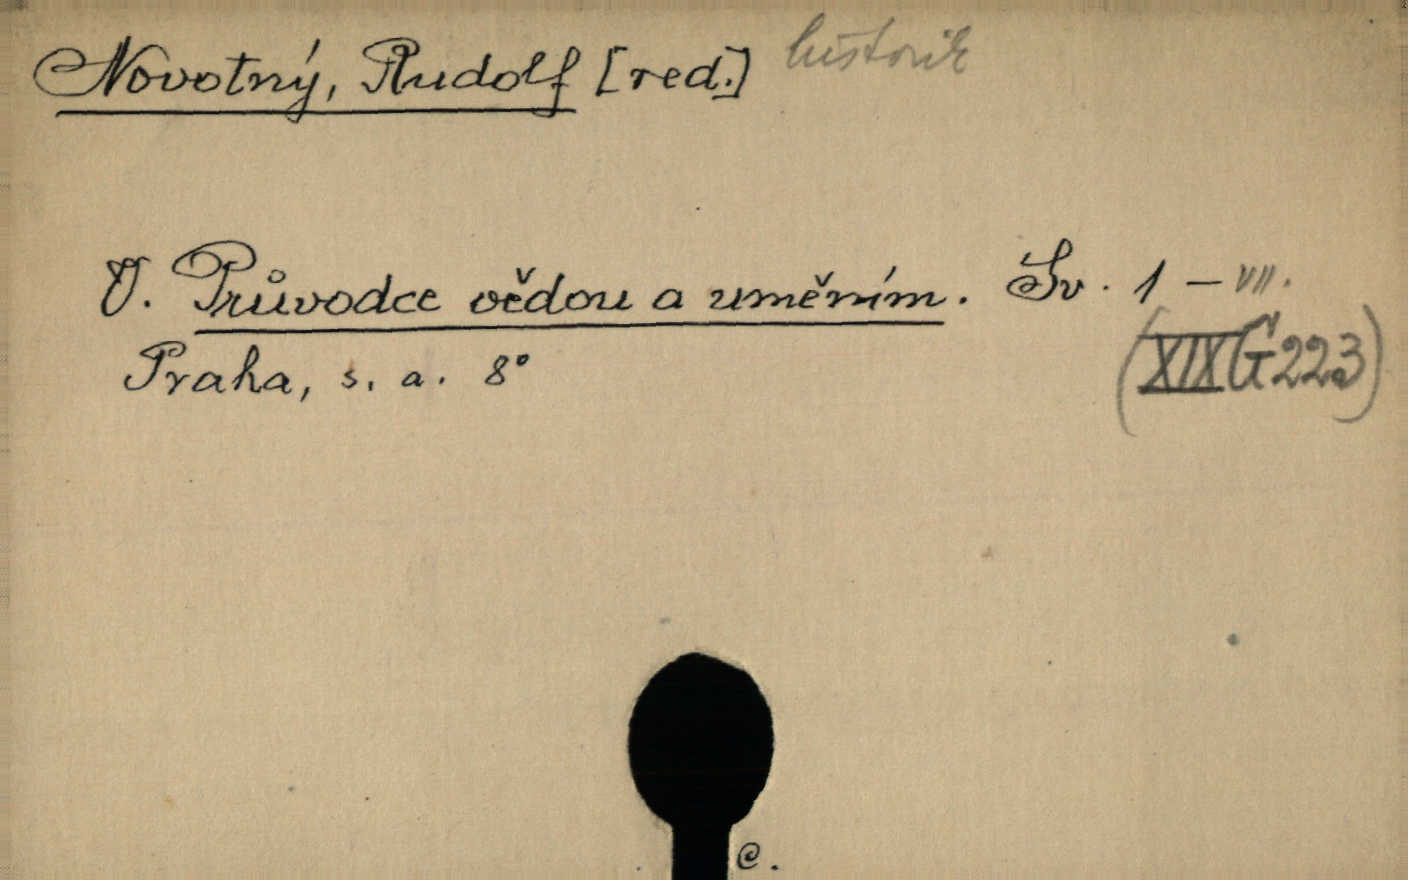 Novotný, Rudolf [red.] historik
V. Průvodce vědou a uměním. Sv. 1 – VII.
(XIX G 223)
Praha, s. a. 8°
C.